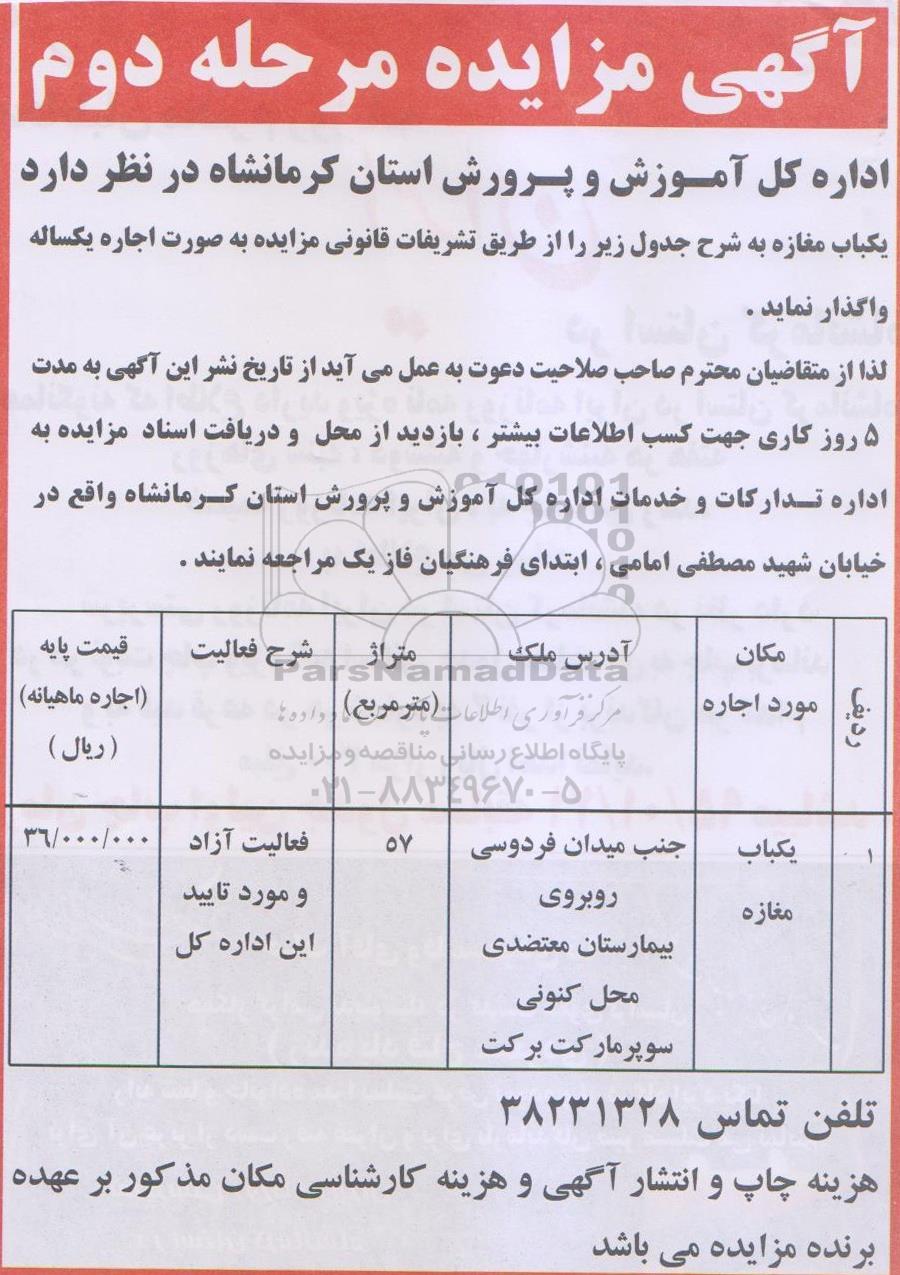 آگهی مزایده مرحله دوم
اداره کل آموزش و پرورش استان کرمانشاه در نظر دارد
یکباب مغازه به شرح جدول زیر را از طریق تشریفات قانونی مزایده به صورت اجاره یکساله
واگذار نماید .
لذا از متقاضیان محترم صاحب صلاحیت دعوت به عمل می آید از تاریخ نشر این آگهی به مدت
۵ روز کاری جهت کسب اطلاعات بیشتر ، بازدید از محل و دریافت اسناد مزایده به
اداره تدارکات و خدمات اداره کل آموزش و پرورش استان کرمانشاه واقع در
خیابان شهید مصطفی امامی ، ابتدای فرهنگیان فاز یک مراجعه نمایند .
ردیف
مکان
مورد اجاره
آدرس ملک
متراژ
(مترمربع)
شرح فعالیت
قیمت پایه
(اجاره ماهیانه)
(ریال)
ParsNamadData
پایگاه اطلاع رسانی مناقصه و مزایده
۰۲۱-۸۸۳۴۹۶۷۰-۵
۱
یکباب
مغازه
جنب میدان فردوسی
روبروی
بیمارستان معتضدی
محل کنونی
سوپرمارکت برکت
۵۷
فعالیت آزاد
و مورد تایید
این اداره کل
۳۶/۰۰۰/۰۰۰
تلفن تماس ۳۸۲۳۱۳۲۸
هزینه چاپ و انتشار آگهی و هزینه کارشناسی مکان مذکور بر عهده
برنده مزایده می باشد